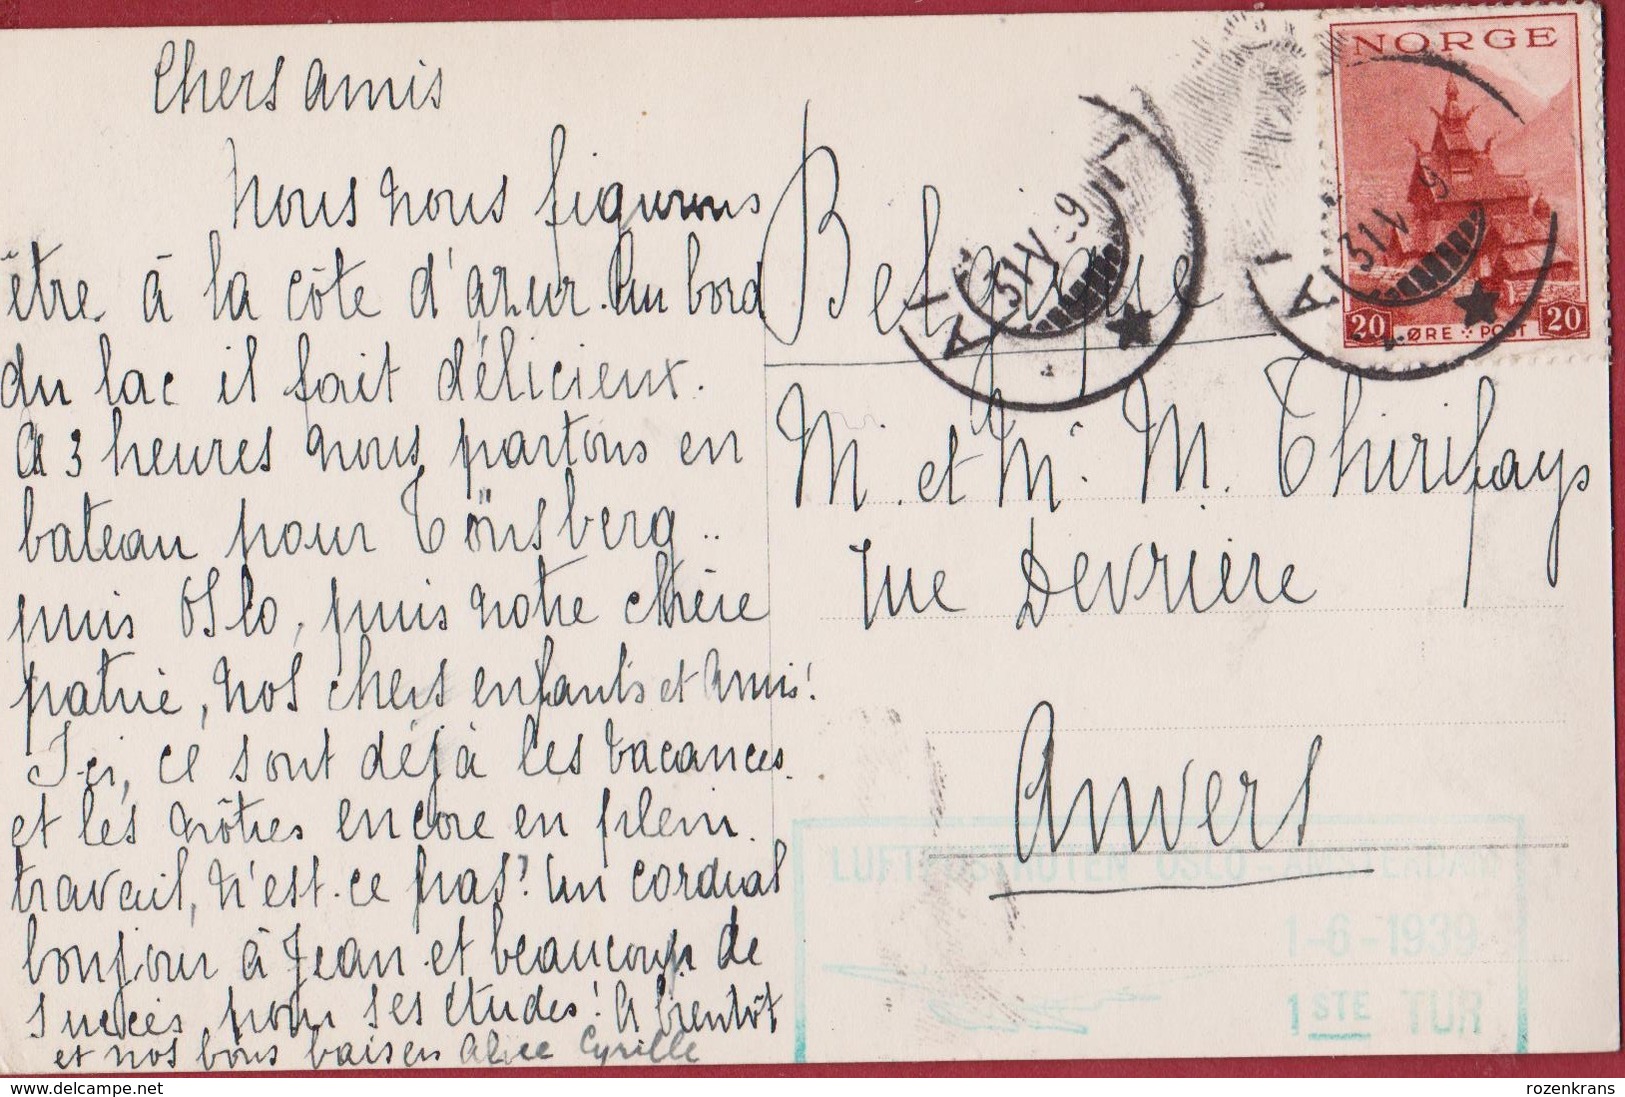 Chers amis
Nous nous figurons
être à la côte d'azur. Au bord
du lac il fait délicieux.
A 3 heures nous partons en
bateau pour Tönsberg..
puis Oslo, puis notre chère
patrie, nos chers enfants et amis!
Ici, ce sont déjà les vacances
et les nôtres encore en plein
travail, n'est-ce pas? Un cordial
bonjour à Jean et beaucoup de
succès pour ses études! A bientôt
et nos bons baisers Alice Cyrille
Belgique
M. et Me. M. Thirifays
rue Devrière
Anvers
NORGE
20 ØRE POST 20
31 V 39
31 V 39
LUFTPOSTRUTEN OSLO-AMSTERDAM
1-6-1939
1STE TUR
delcampe.net
rozenkrans